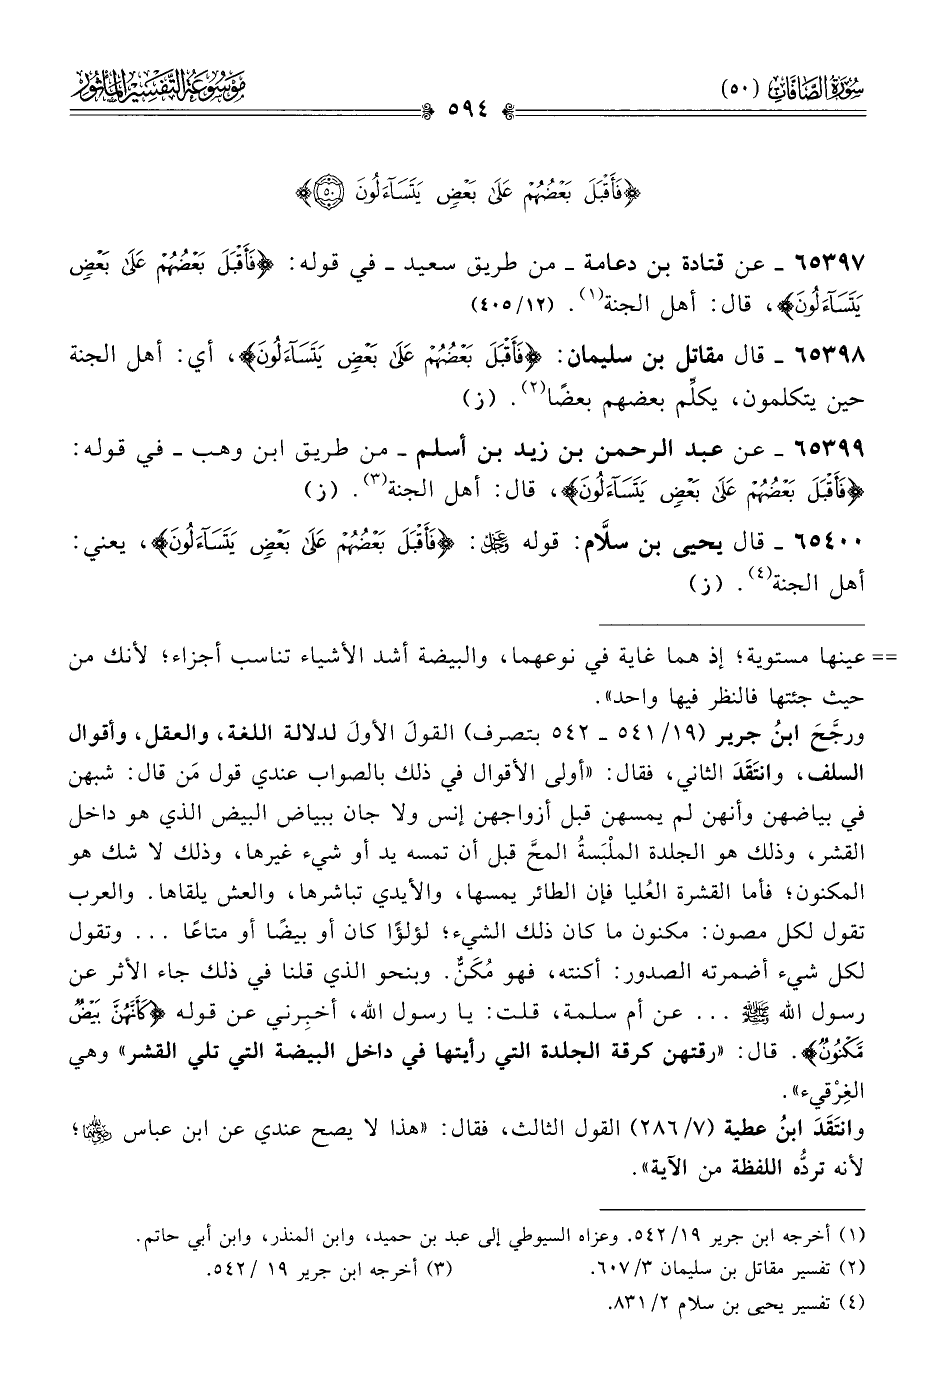 سُورَةُ الصَّافَّاتِ (٥٠)
٥٩٤
مَوْسُوعَةُ التَّفْسِيرِ المَأْثُور
﴿فَأَقْبَلَ بَعْضُهُمْ عَلَىٰ بَعْضٍ يَتَسَآءَلُونَ ۝٥٠﴾
٦٥٣٩٧ ـ عن قتادة بن دعامة ـ من طريق سعيد ـ في قوله: ﴿فَأَقْبَلَ بَعْضُهُمْ عَلَىٰ بَعْضٍ
يَتَسَآءَلُونَ﴾، قال: أهل الجنة(١). (١٢/ ٤٠٥)
٦٥٣٩٨ ـ قال مقاتل بن سليمان: ﴿فَأَقْبَلَ بَعْضُهُمْ عَلَىٰ بَعْضٍ يَتَسَآءَلُونَ﴾، أي: أهل الجنة
حين يتكلمون، يكلِّم بعضهم بعضًا(٢). (ز)
٦٥٣٩٩ ـ عن عبد الرحمن بن زيد بن أسلم ـ من طريق ابن وهب ـ في قوله:
﴿فَأَقْبَلَ بَعْضُهُمْ عَلَىٰ بَعْضٍ يَتَسَآءَلُونَ﴾، قال: أهل الجنة(٣). (ز)
٦٥٤٠٠ ـ قال يحيى بن سلَّام: قوله ﷿: ﴿فَأَقْبَلَ بَعْضُهُمْ عَلَىٰ بَعْضٍ يَتَسَآءَلُونَ﴾، يعني:
أهل الجنة(٤). (ز)
== عينها مستوية؛ إذ هما غاية في نوعهما، والبيضة أشد الأشياء تناسب أجزاء؛ لأنك من
حيث جئتها فالنظر فيها واحد».
ورجَّحَ ابنُ جرير (١٩/ ٥٤١ ـ ٥٤٢ بتصرف) القولَ الأولَ لدلالة اللغة، والعقل، وأقوال
السلف، وانتَقَدَ الثاني، فقال: «أولى الأقوال في ذلك بالصواب عندي قول مَن قال: شبهن
في بياضهن وأنهن لم يمسهن قبل أزواجهن إنس ولا جان ببياض البيض الذي هو داخل
القشر، وذلك هو الجلدة الملْبَسةُ المحَّ قبل أن تمسه يد أو شيء غيرها، وذلك لا شك هو
المكنون؛ فأما القشرة العُليا فإن الطائر يمسها، والأيدي تباشرها، والعش يلقاها. والعرب
تقول لكل مصون: مكنون ما كان ذلك الشيء؛ لؤلؤًا كان أو بيضًا أو متاعًا ... وتقول
لكل شيء أضمرته الصدور: أكنته، فهو مُكَنٌّ. وبنحو الذي قلنا في ذلك جاء الأثر عن
رسول الله ﷺ ... عن أم سلمة، قلت: يا رسول الله، أخبِرني عن قوله ﴿كَأَنَّهُنَّ بَيْضٌ
مَّكْنُونٌ﴾. قال: «رقتهن كرقة الجلدة التي رأيتها في داخل البيضة التي تلي القشر» وهي
الغِرْقيء».
وانتَقَدَ ابنُ عطية (٧/ ٢٨٦) القول الثالث، فقال: «هذا لا يصح عندي عن ابن عباس ﵄؛
لأنه تردُّه اللفظة من الآية».
(١) أخرجه ابن جرير ١٩/ ٥٤٢. وعزاه السيوطي إلى عبد بن حميد، وابن المنذر، وابن أبي حاتم.
(٢) تفسير مقاتل بن سليمان ٣/ ٦٠٧. (٣) أخرجه ابن جرير ١٩/ ٥٤٢.
(٤) تفسير يحيى بن سلام ٢/ ٨٣١.